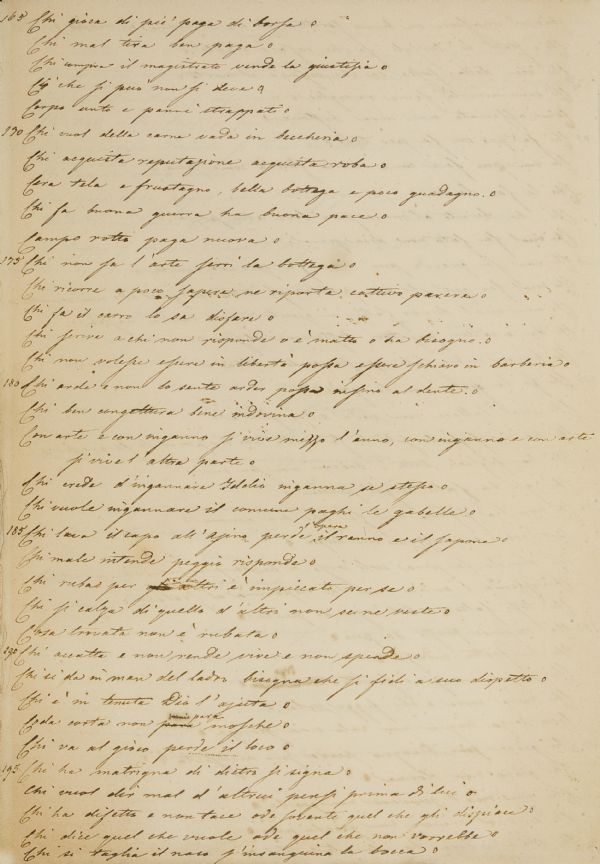 165 Chi gioca di piè paga di borsa
Chi mal tira ben paga
Chi compra il magistrato vende la giustizia
Ciò che si può non si deve
Corpo unto e panni strappati
170 Chi vuol della carne vada in beccheria
Chi acquista reputazione acquista roba
Cera tela e frustagno, bella bottega e poco guadagno.
Chi fa buona guerra ha buona pace
Campo rotto paga nuova
175 Chi non fa l'arte serri la bottega
Chi ricorre a poco sapere ne riporta cattivo parere
Chi fa il carro lo sa disfare
Chi scrive a chi non risponde o è matto o ha bisogno.
Chi non volesse essere in libertà possa essere schiavo in barberia
180 Chi arde e non lo sente arder possa infino al dente.
Chi ben congettura bene indovina
Con arte e con inganno si vive mezzo l'anno, con inganno e con arte
si vive l'altra parte
Chi crede d'ingannare Iddio inganna se stesso
Chi vuole ingannare il comune paghi le gabelle
185 Chi lava il capo all'Asino perde opera il ranno e il sapone
Chi male intende peggio risponde
Chi ruba per altri è impiccato per se
Chi si calza di quello d'altri non se ne veste
Cosa trovata non è rubata
190 Chi accatta e non rende vive e non spende
Chi si dà in man del ladro bisogna che si fidi a suo dispetto
Chi è in tenuta Dio l'ajuta
Coda corta non para mosche
Chi va al gioco perde il loco
195 Chi ha matrigna di dietro si signa
Chi vuol dir mal d'altrui pensi prima di lui
Chi ha difetto e non tace ode sovente quel che gli dispiace
Chi dice quel che vuole ode quel che non vorrebbe
Chi si taglia il naso s'insanguina la bocca